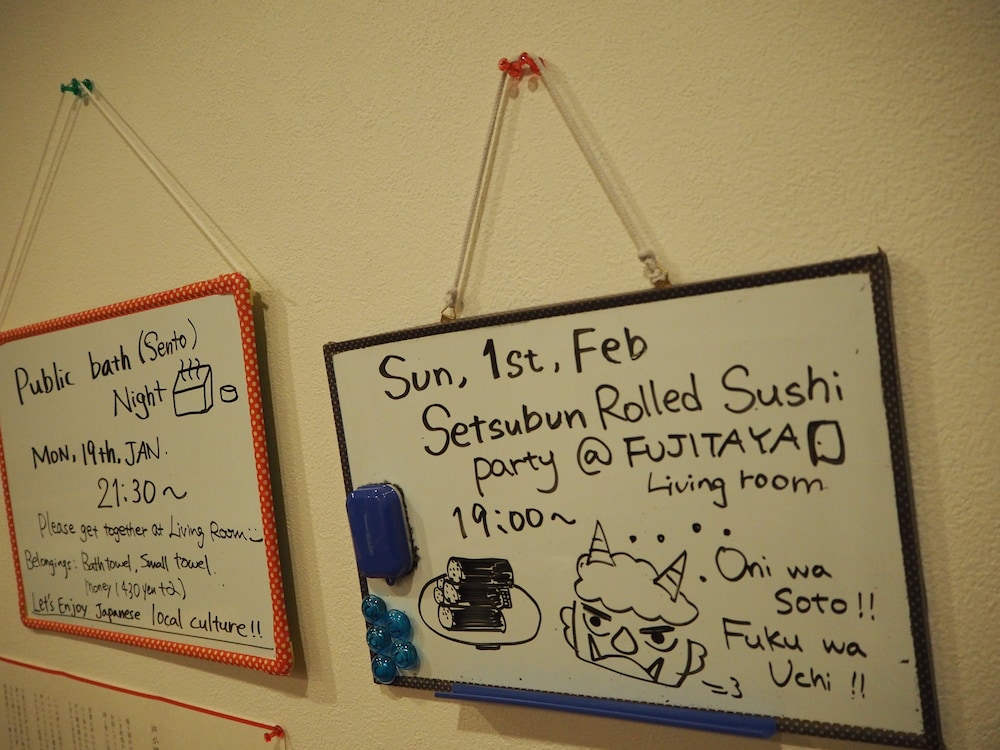 Public bath (Sento)
Night
MON, 19th, JAN.
21:30~
Please get together at Living Room
Belongings: Bath towel, Small towel.
Money (430yen+α)
Let's Enjoy Japanese local culture!!
Sun, 1st, Feb
Setsubun Rolled Sushi
party @ FUJITAYA
Living room
19:00~
Oni wa
Soto!!
Fuku wa
Uchi!!